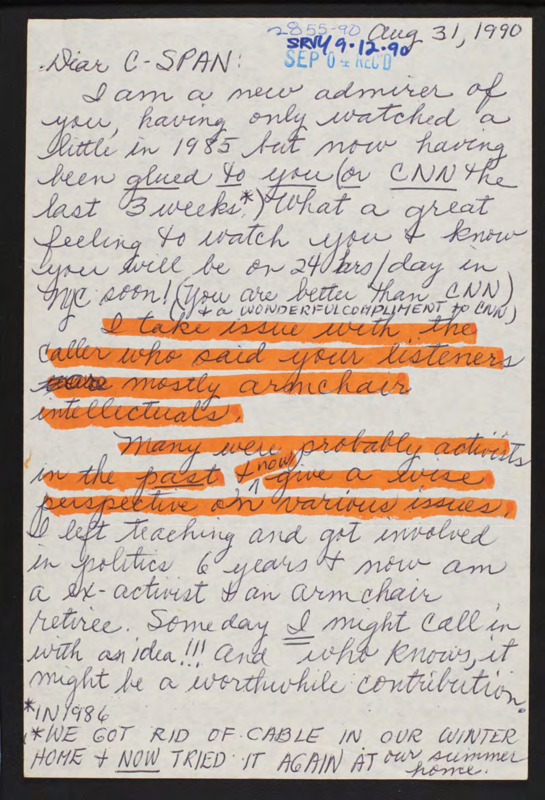 2855-90 Aug 31, 1990
SRVY 9-12-90
SEP 04 REC'D
Dear C-SPAN:
I am a new admirer of
you, having only watched a
little in 1985 but now having
been glued to you (or CNN the
last 3 weeks*.) What a great
feeling to watch you & know
you will be on 24 hrs/day in
NYC soon! (You are better than CNN)
& a WONDERFUL COMPLIMENT TO CNN)
I take issue with the
caller who said your listeners
mostly armchair
intellectuals.
Many were probably activists
in the past & now give a wise
perspective on various issues.
I left teaching and got involved
in politics 6 years & now am
a ex-activist & an armchair
retiree. Someday I might call in
with an idea!!! and who knows, it
might be a worthwhile contribution.
*IN 1986
*WE GOT RID OF CABLE IN OUR WINTER
HOME & NOW TRIED IT AGAIN AT our summer
home.